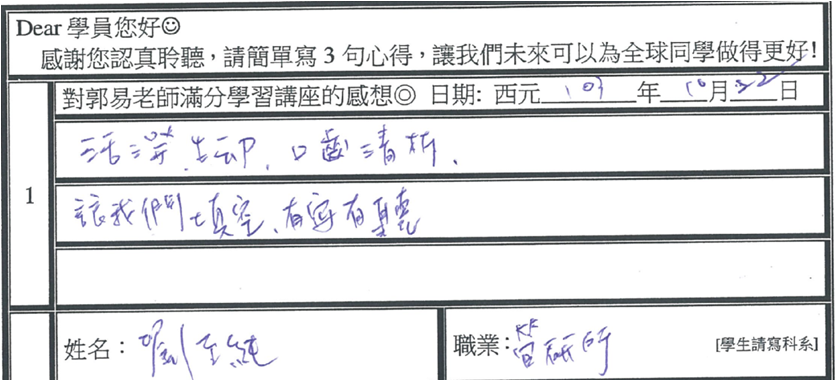 Dear 學員您好☺
感謝您認真聆聽，請簡單寫 3 句心得，讓我們未來可以為全球同學做得更好!
對郭易老師滿分學習講座的感想◎ 日期: 西元 103 年 10 月 22 日
1
活潑生動、口齒清晰、
讓我們填空、有寫有
姓名：劉至純
職業：管研所 [學生請寫科系]